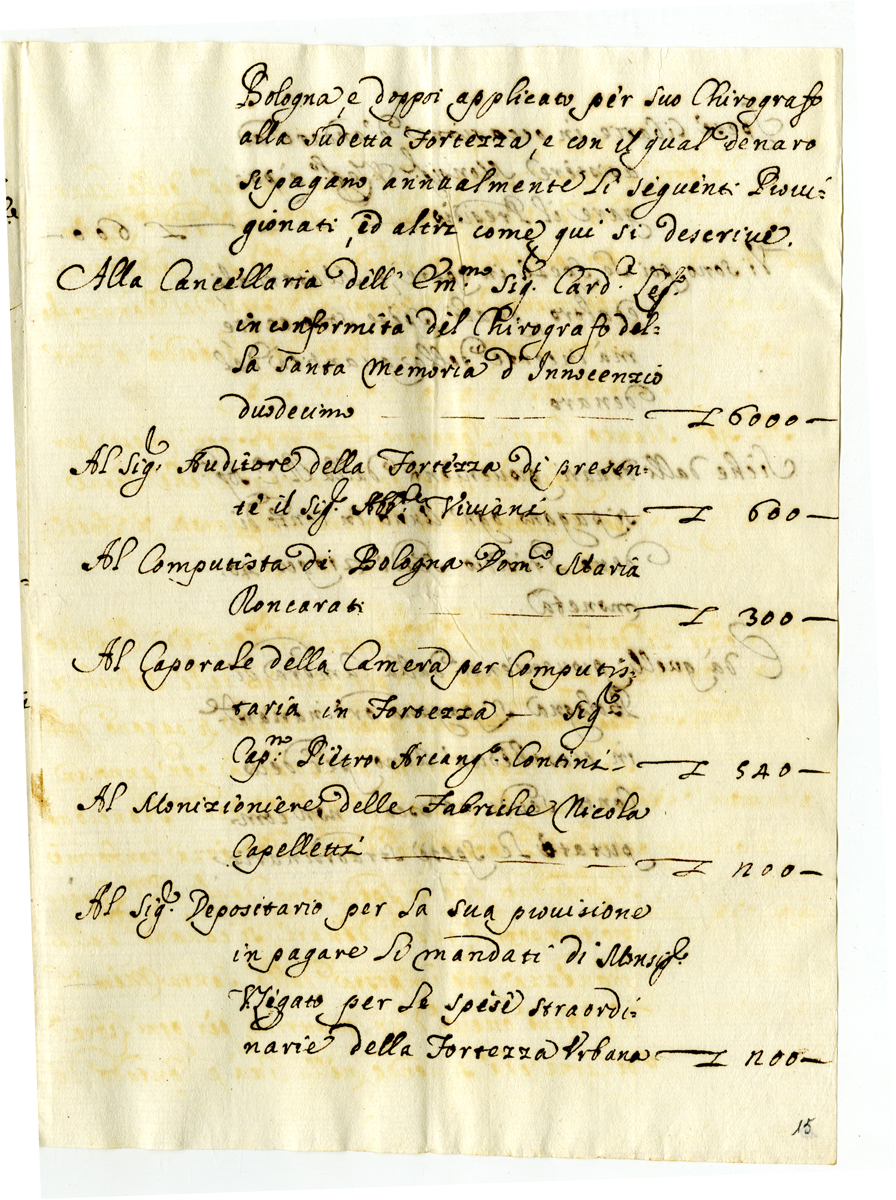 Bologna, e doppoi applicato per suo Chirografo
alla sudetta Fortezza, e con il qual denaro
si pagano annualmente li seguenti Provi:
gionati, ed altri come qui si descrive.
Alla Cancellaria dell' Em.mo Sig.r Card.l Leg.o
in conformità del Chirografo del=
la Santa Memoria d'Innocenzio
duodecimo — £ 6000 —
Al Sig.r Auditore della Fortezza di presen=
te il Sig.r Ab.te Viviani — £ 600 —
Al Computista di Bologna Dom.o Maria
Roncarati — £ 300 —
Al Caporale della Camera per Computis=
taria in Fortezza — Sig.r
Cap.no Pietro Arcang.o Contini — £ 540 —
Al Monizioniere delle Fabriche Nicola
Capelletti — £ 1200 —
Al Sig.r Depositario per la sua provisione
in pagare li mandati di Monsig.r
V.Legato per le spese straordi:
narie della Fortezza Urbana — £ 1200 —
15